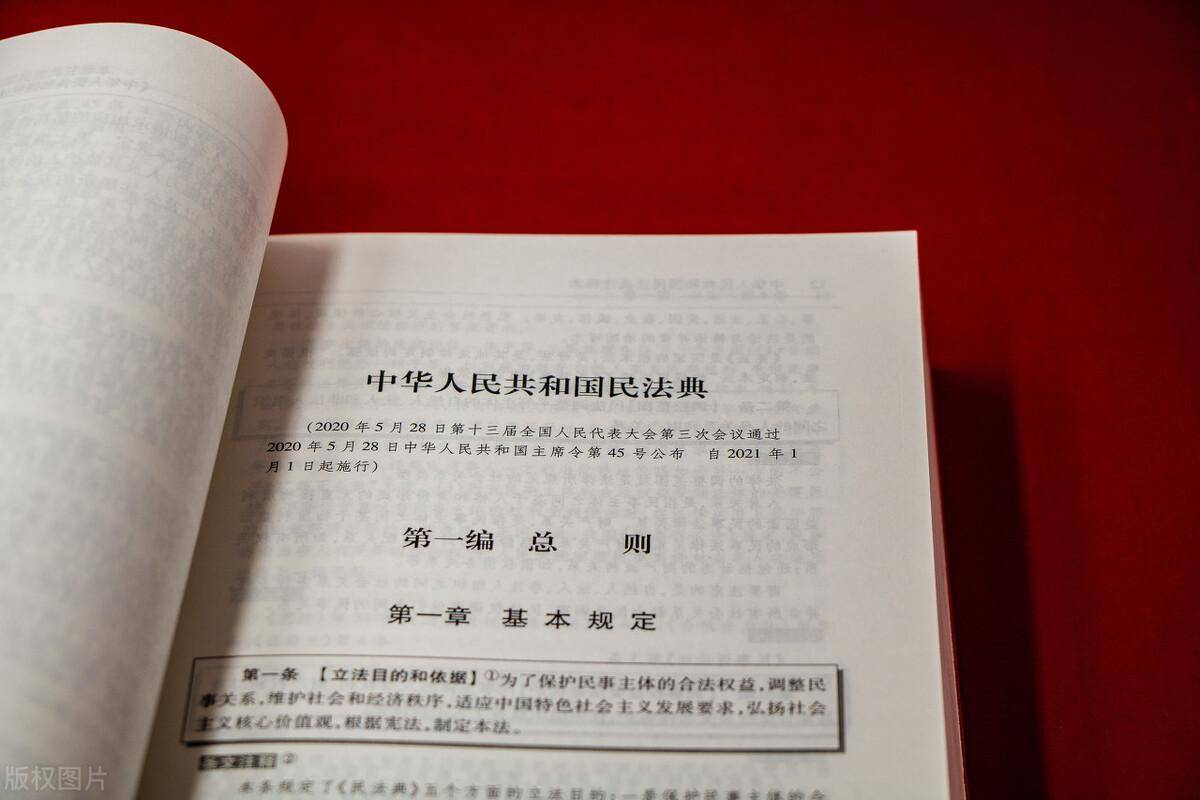 中华人民共和国民法典
(2020年5月28日第十三届全国人民代表大会第三次会议通过
2020年5月28日中华人民共和国主席令第45号公布 自2021年1
月1日起施行)
第一编 总 则
第一章 基本规定
第一条 【立法目的和依据】①为了保护民事主体的合法权益,调整民
事关系,维护社会和经济秩序,适应中国特色社会主义发展要求,弘扬社会
主义核心价值观,根据宪法,制定本法。
条文注释②
本条规定了《民法典》五个方面的立法目的:一是保护民事主体的合
版权图片